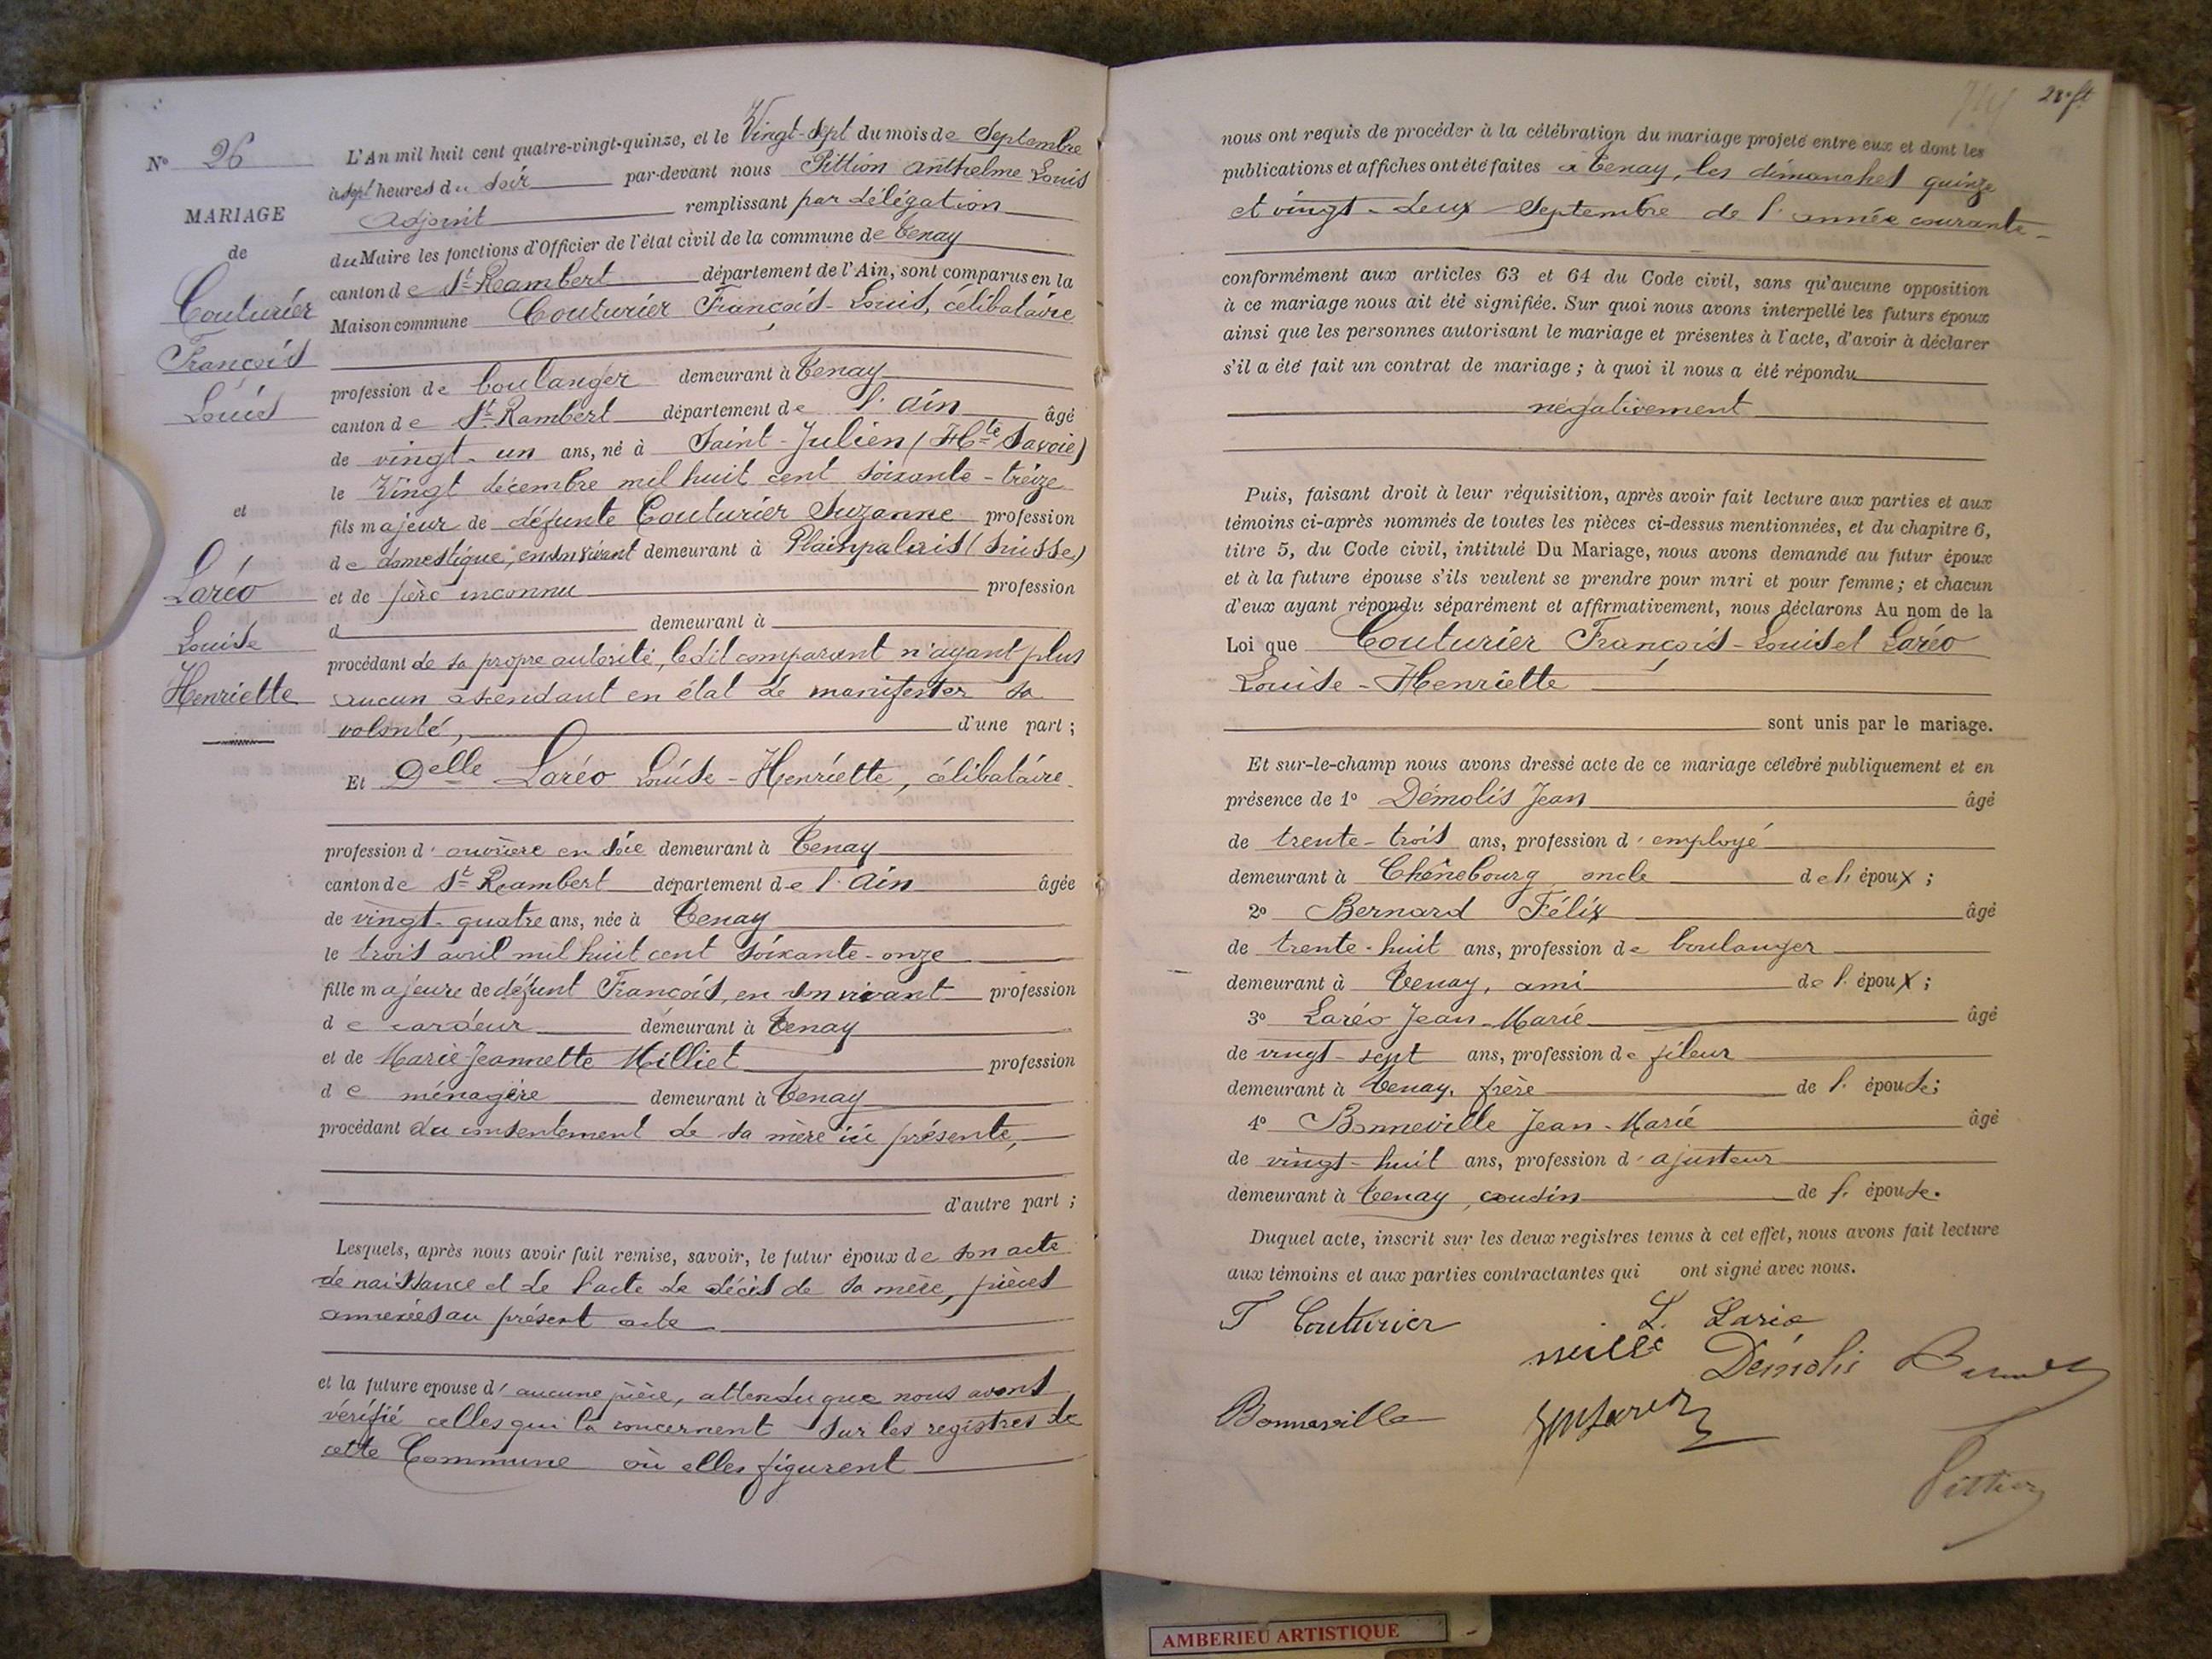 N° 26
MARIAGE
de
Couturier
François
Louis
et
Laréo
Louise
Henriette
L'An mil huit cent quatre-vingt-quinze, et le Vingt-Sept du mois de Septembre
à sept heures du soir par-devant nous Pittion Anthelme Louis
adjoint remplissant par délégation
du Maire les fonctions d'Officier de l'état civil de la commune de Tenay
canton de St Rambert département de l'Ain, sont comparus en la
Maison commune Couturier François-Louis, célibataire
profession de boulanger demeurant à Tenay
canton de St Rambert département de l'Ain âgé
de vingt-un ans, né à Saint-Julien (Hte Savoie)
le Vingt décembre mil huit cent soixante-treize
fils majeur de défunte Couturier Suzanne profession
de domestique, en son vivant demeurant à Plainpalais (Suisse)
et de père inconnu profession
d demeurant à
procédant de sa propre autorité, ledit comparant n'ayant plus
aucun ascendant en état de manifester sa
volonté, d'une part ;
Et Delle Laréo Louise-Henriette, célibataire
profession d'ouvrière en soie demeurant à Tenay
canton de St Rambert département de l'Ain âgée
de vingt-quatre ans, née à Tenay
le trois avril mil huit cent soixante-onze
fille majeure de défunt François, en son vivant profession
de cardeur demeurant à Tenay
et de Marie-Jeannette Milliet profession
de ménagère demeurant à Tenay
procédant du consentement de sa mère ici présente,
d'autre part ;
Lesquels, après nous avoir fait remise, savoir, le futur époux de son acte
de naissance et de l'acte de décès de sa mère, pièces
annexées au présent acte
et la future epouse d'aucune pièce, attendu que nous avons
vérifié celles qui la concernent sur les registres de
cette Commune où elles figurent
nous ont requis de procéder à la célébration du mariage projeté entre eux et dont les
publications et affiches ont été faites à Tenay, les dimanches quinze
et vingt-deux Septembre de l'année courante
conformément aux articles 63 et 64 du Code civil, sans qu'aucune opposition
à ce mariage nous ait été signifiée. Sur quoi nous avons interpellé les futurs époux
ainsi que les personnes autorisant le mariage et présentes à l'acte, d'avoir à déclarer
s'il a été fait un contrat de mariage ; à quoi il nous a été répondu
négativement
Puis, faisant droit à leur réquisition, après avoir fait lecture aux parties et aux
témoins ci-après nommés de toutes les pièces ci-dessus mentionnées, et du chapitre 6,
titre 5, du Code civil, intitulé Du Mariage, nous avons demandé au futur époux
et à la future épouse s'ils veulent se prendre pour mari et pour femme ; et chacun
d'eux ayant répondu séparément et affirmativement, nous déclarons Au nom de la
Loi que Couturier François-Louis et Laréo
Louise-Henriette
sont unis par le mariage.
Et sur-le-champ nous avons dressé acte de ce mariage célébré publiquement et en
présence de 1° Démolis Jean âgé
de trente-trois ans, profession d'employé
demeurant à Chênebourg oncle de l'époux ;
2° Bernard Félix âgé
de trente-huit ans, profession de boulanger
demeurant à Tenay, ami de l'époux ;
3° Laréo Jean-Marie âgé
de vingt-sept ans, profession de fileur
demeurant à Tenay, frère de l'épouse ;
4° Bonneville Jean-Marie âgé
de vingt-huit ans, profession d'ajusteur
demeurant à Tenay, cousin de l'épouse.
Duquel acte, inscrit sur les deux registres tenus à cet effet, nous avons fait lecture
aux témoins et aux parties contractantes qui ont signé avec nous.
F Couturier L. Lario
Démolis
Bonneville
Pittion
AMBERIEU ARTISTIQUE